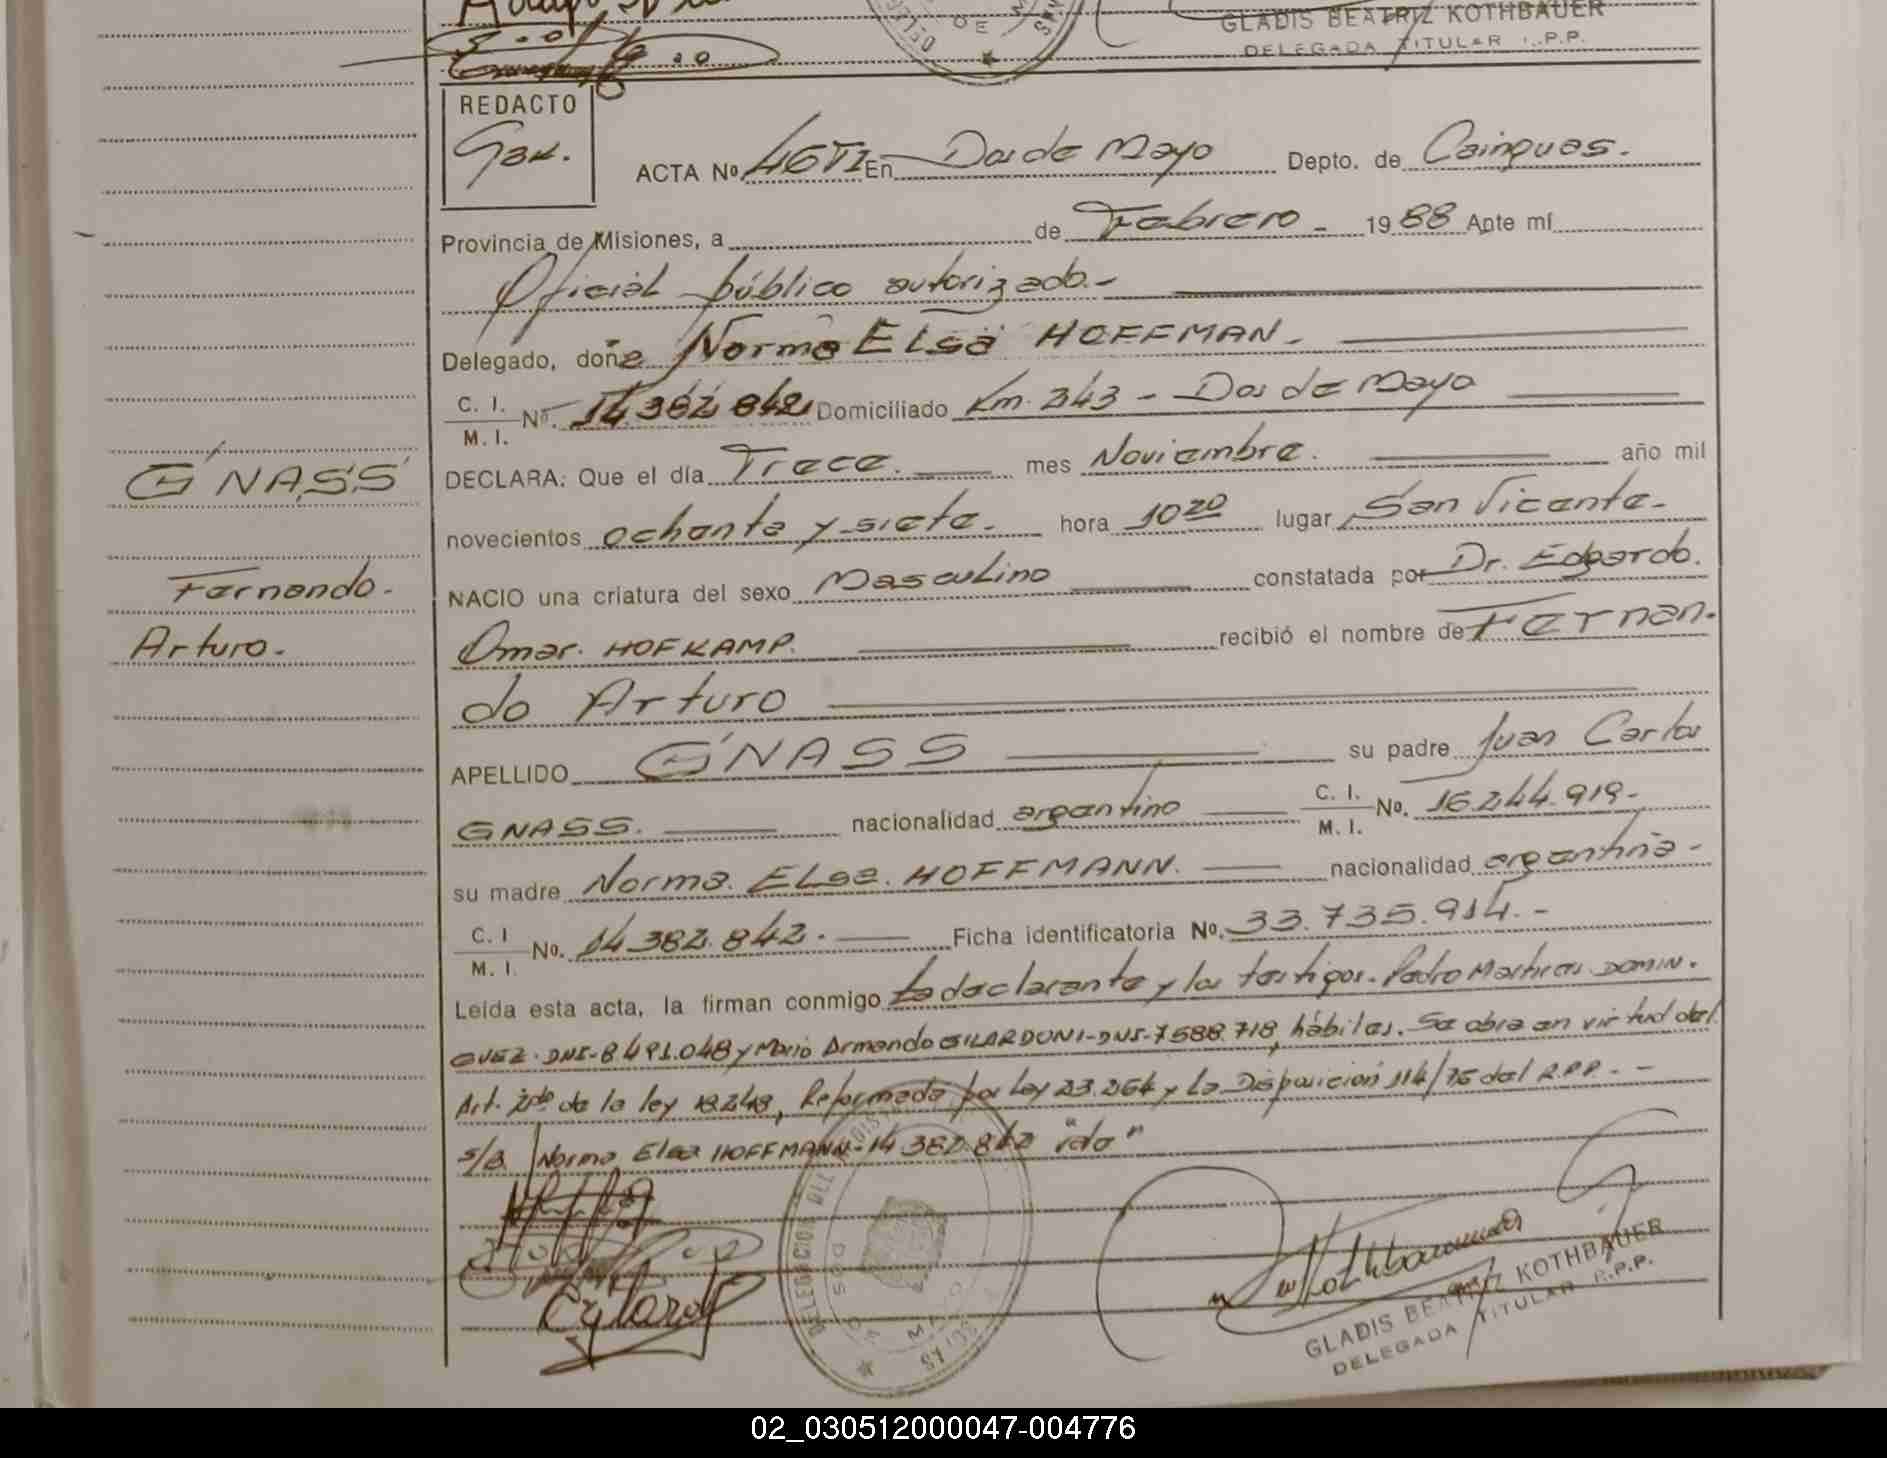 GLADIS BEATRIZ KOTHBAUER
DELEGADA TITULAR R.P.P.
REDACTO
ACTA Nº 46TI En Dos de Mayo Depto. de Cainguas.
Provincia de Misiones, a de Febrero - 1988 Ante mí
Oficial público autorizado.-
Delegado, doña Norma Elsa HOFFMAN.
C. I.
M. I.
Nº. 14.382.842 Domiciliado Km. 243 - Dos de Mayo
DECLARA: Que el día Trece. mes Noviembre. año mil
novecientos ochenta y siete. hora 10 20 lugar San Vicente.
GNASS
NACIO una criatura del sexo Masculino constatada por Dr. Edgardo.
Fernando.
Omar. HOFKAMP. recibió el nombre de Fernan.
Arturo.
do Arturo
APELLIDO GNASS su padre Juan Carlos
GNASS. nacionalidad argentino C. I. M. I. No. 16.244.919.
su madre Norma. Elsa. HOFFMANN. nacionalidad argentina -
C. I
M. I.
No. 14.382.842. Ficha identificatoria No. 33.735.914. -
Leída esta acta, la firman conmigo La declarante y los testigos. Pedro DOMIN.
GUEZ. DNI-8.491.048 y Mario Armando GILARDONI-DNI-7588.718, hábiles. Se obra en virtud del
Art. 2do de la ley 18.248, Reformada por Ley 23.264 y La Disposición 114/75 del R.P.P. - -
s/b Norma Elsa HOFFMANN-14.382.842 "ido"
DELEGACION DEL
DOS DE MAYO
GLADIS BEATRIZ KOTHBAUER
DELEGADA TITULAR R.P.P.
02_030512000047-004776